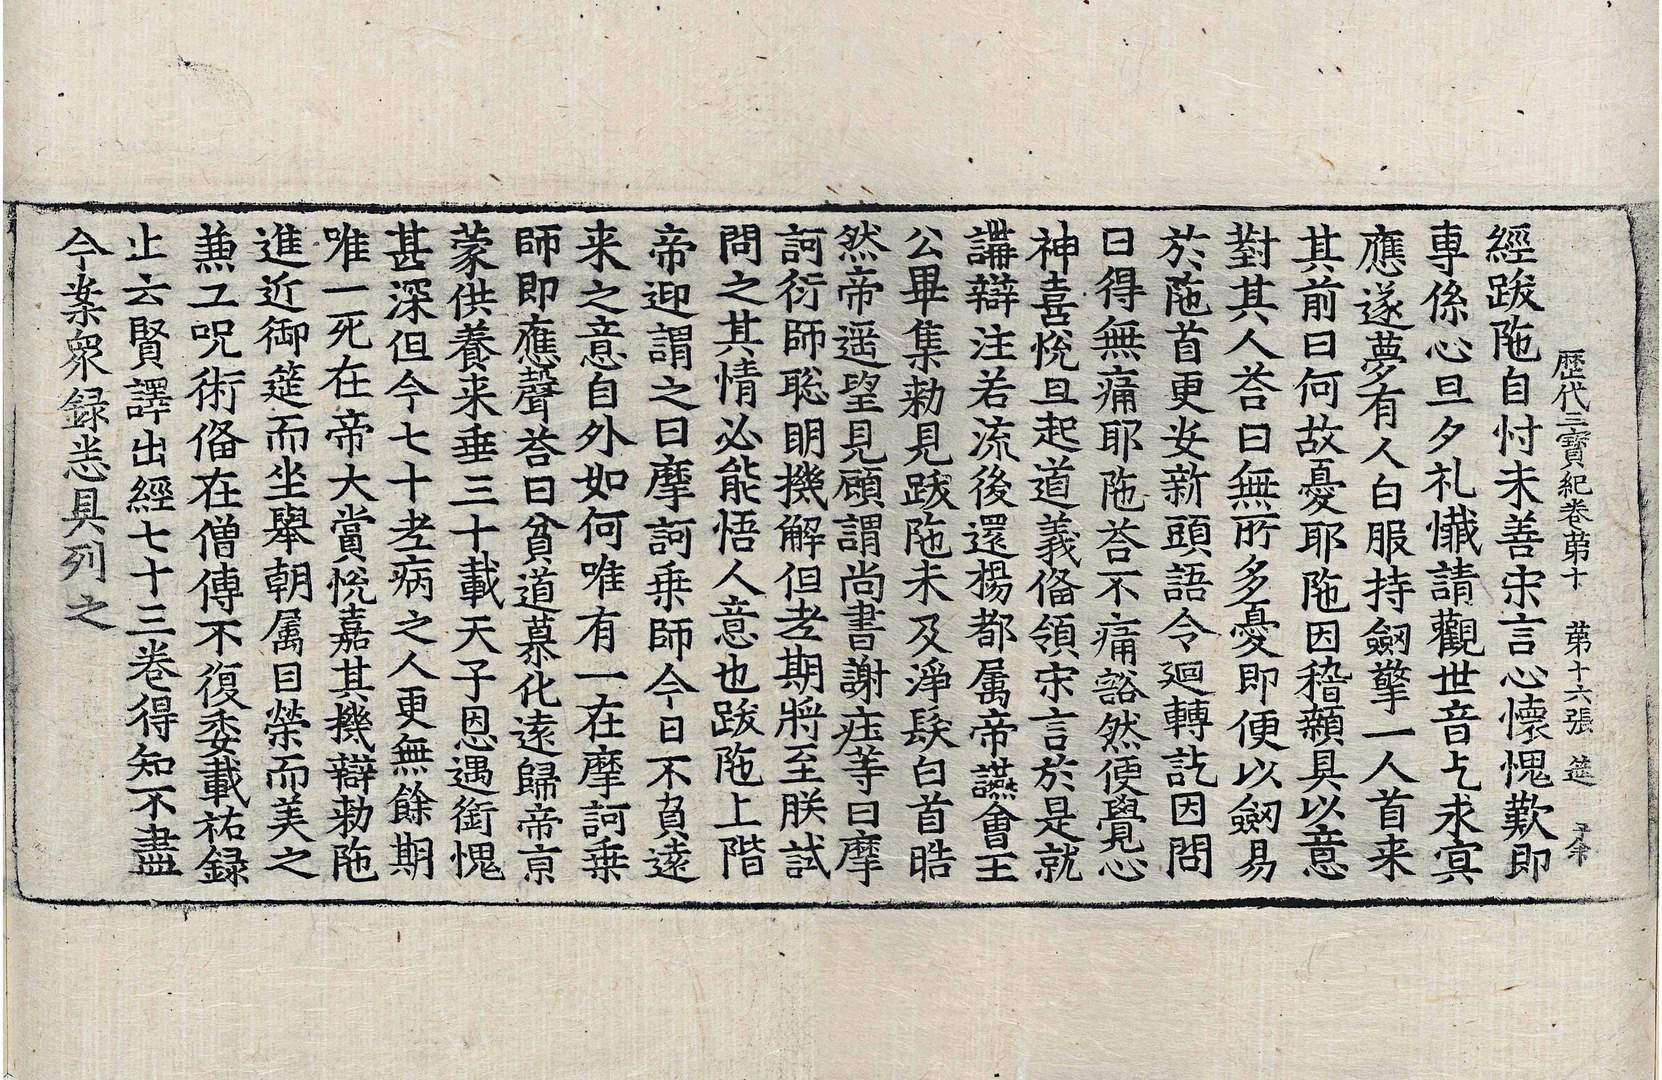 歷代三寶紀卷苐十　苐十六張　筵
經跋陁自忖未善宋言心懷愧歎即
專係心旦夕礼懺請觀世音乞求㝠
應遂夢有人白服持劔擎一人首来
其前曰何故憂耶陁因稽顙具以意
對其人荅曰無所多憂即便以劔易
於陁首更安新頭語令迴轉訖因問
曰得無痛耶陁荅不痛豁然便覺心
神喜悅旦起道義俻領宋言於是就
講辯注若流後還楊都属帝讌會王
公畢集勑見跋陁未及淨髮白首皓
然帝遥望見顧謂尚書謝庄等曰摩
訶衍師聡明機解但老期將至朕試
問之其情必能悟人意也跋陁上階
帝迎謂之曰摩訶乗師今日不負遠
来之意自外如何唯有一在摩訶乗
師即應聲荅曰貧道慕化遠歸帝京
蒙供養来垂三十載天子恩遇銜愧
甚深但今七十老病之人更無餘期
唯一死在帝大賞悅嘉其機辯勑陁
進近御筵而坐舉朝属目榮而美之
䒥工呪術俻在僧傳不復委載祐録
止云賢譯出經七十三卷得知不盡
今案衆録悉具列之